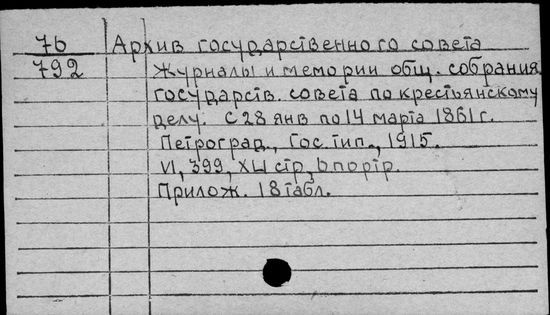 7б Архив государственного совета
792 Журналы и мемории общ. собрания
государств. совета по крестьянскому
делу. С 28 янв по 14 марта 1861 г.
Петроград, Гос. тип., 1915.
VI, 399, XLI стр, 6 портр.
Прилож. 18 табл.